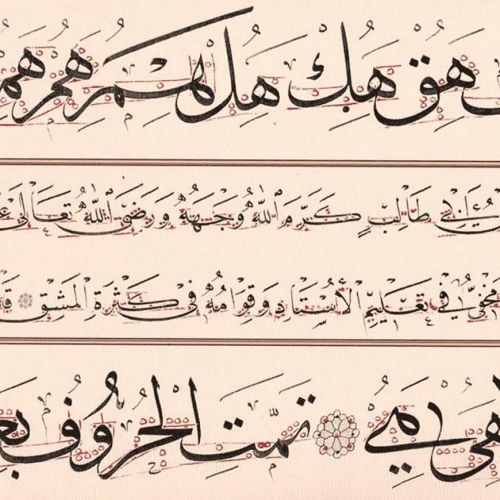 هق هك هل هم هم هم
طَالِبٍ كَرَّمَ اللهُ وَجْهَهُ وَرَضِيَ اللهُ تَعَالَى
مَخْفِيٌّ في تَعْلِيمِ الْأُسْتَادِ وَقِوَامُهُ في كَثْرَةِ الْمَشْقِ
تَمَّتِ الْحُرُوفُ